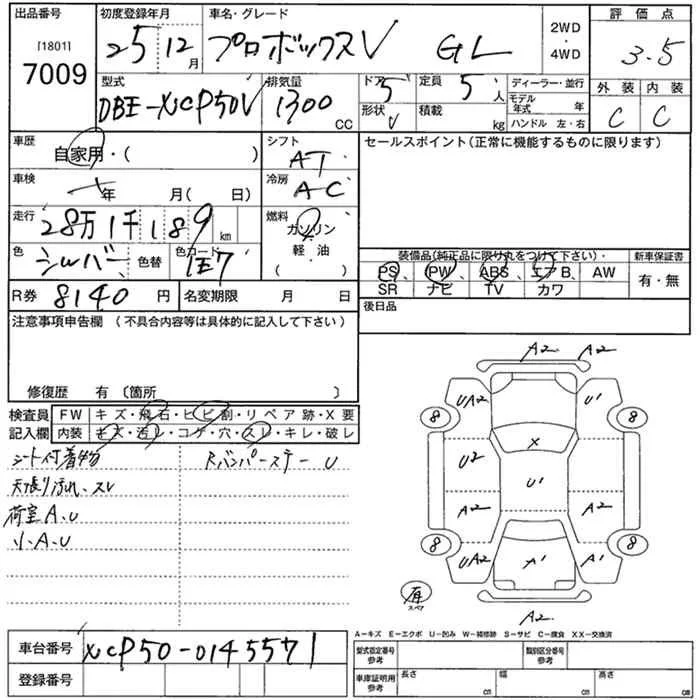 出品番号 初度登録年月 車名・グレード 2WD・4WD 評価点
[1801] 7009 25 12月 プロボックスV GL 3.5
型式 排気量 ドア 5 定員 5人 ディーラー・並行 外装 内装
DBE-NCP50V 1300 CC 形状 V 積載 kg モデル年式 年 ハンドル 左・右 C C
車歴 自家用・( ) シフト AT セールスポイント(正常に機能するものに限ります)
車検 年 月( 日) 冷房 AC
走行 28万1千189km 燃料 ガソリン 軽・油 ( )
色 シルバー 色替 色コード 1E7
装備品(純正品に限り丸をつけて下さい)・ 新車保証書
PS、 PW、 ABS、 エアB、 AW 有・無
SR ナビ TV カワ
R券 8140円 名変期限 月 日 後日品
注意事項申告欄 (不具合内容等は具体的に記入して下さい)
修復歴 有〔箇所 〕
検査員 FW キズ・飛石・ヒビ割・リペア跡・X要
記入欄 内装 キズ・汚レ・コゲ・穴・スレ・キレ・破レ
シート付着物 Rバンパーステー U
天張り汚れ、スレ
荷室A、U
小A、U
A2 A2
UA2 U1
8 8
X
U2 U1
A2 A2
8 8
UA2 A1 A1
有 スペア
A2
A−キズ E−エクボ U−凹み W−補修跡 S−サビ C−腐食 XX−交換済
車台番号 NCP50-0145571 型式指定番号 参考 類別区分番号 参考
登録番号 車庫証明用 参考 長さ cm 幅 cm 高さ cm